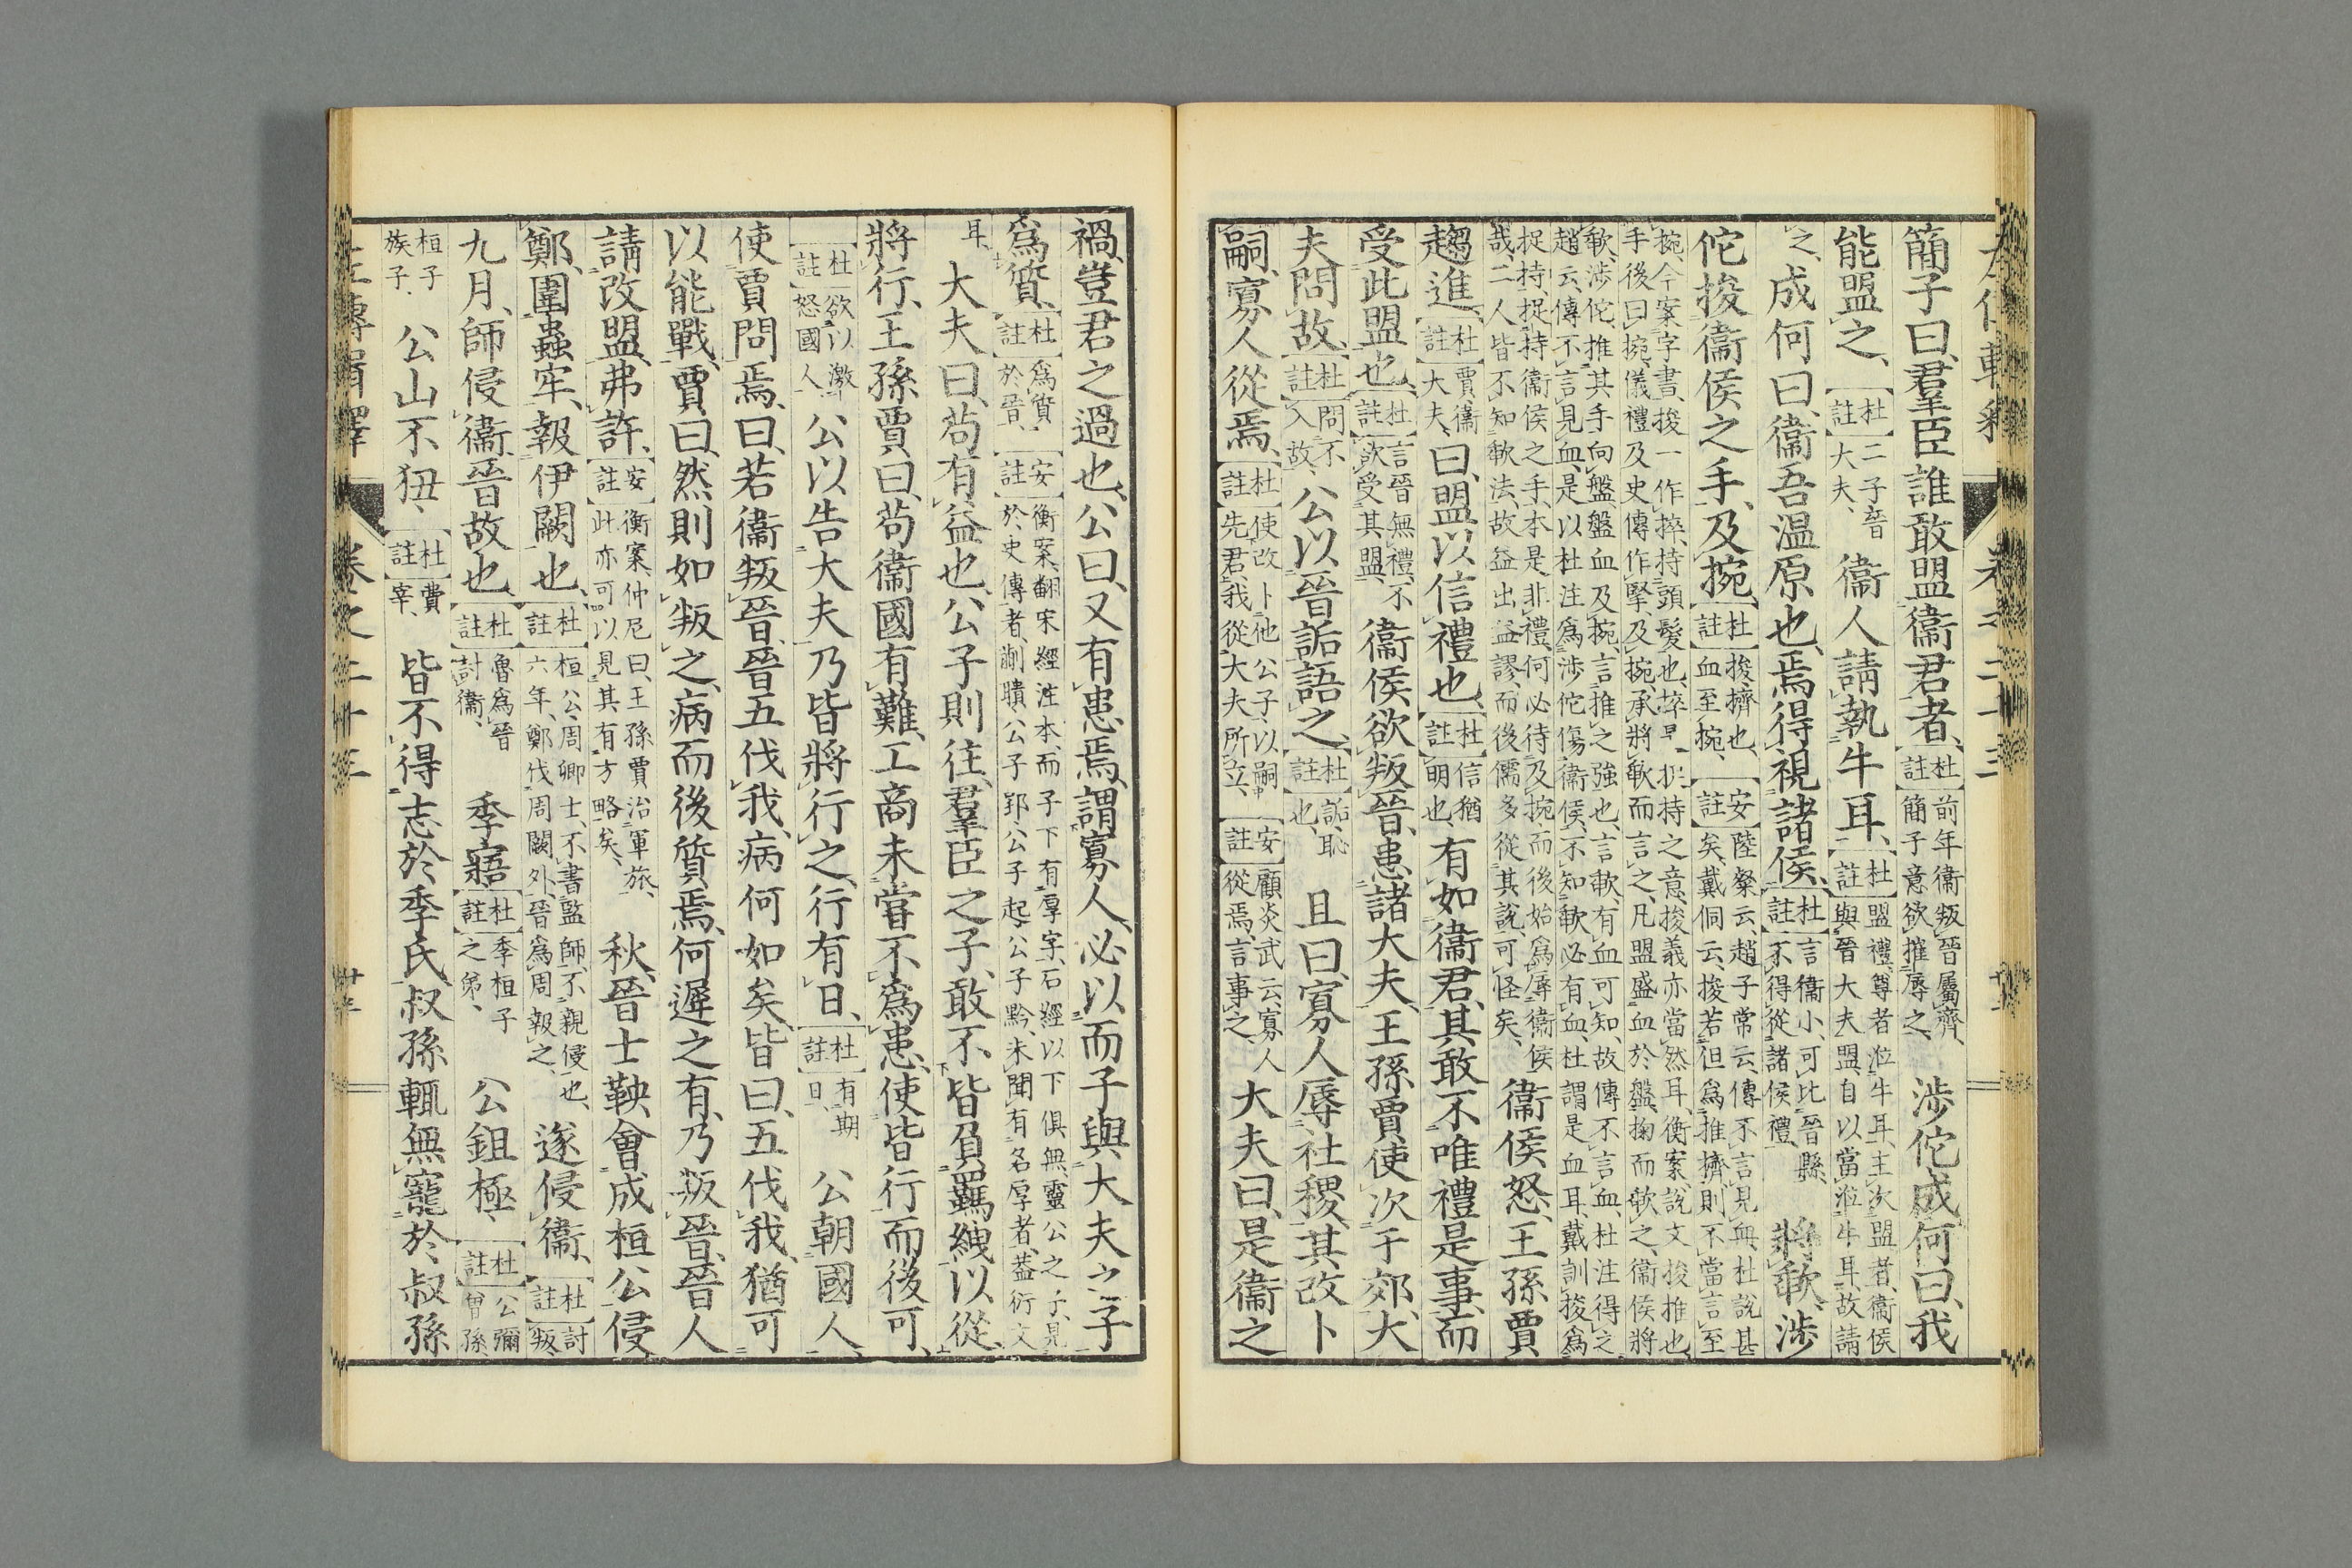 簡子曰、羣臣誰敢盟衞君者、杜註前年衞叛晉屬齊、簡子意欲摧辱之、涉佗成何曰、我
能盟之、杜註二子晉大夫、衞人請執牛耳、杜註盟禮、尊者涖牛耳、主次盟者、衞侯與晉大夫盟、自以當涖牛耳、故請
之、成何曰、衞吾溫原也、焉得視諸侯、杜註言衞小、可比晉縣、不得從諸侯禮、將歃、涉
佗捘衞侯之手、及捥、杜註捘、擠也、血至捥、安註陸粲云、趙子常云、傳不言見血、杜說甚矣、戴侗云、捘若但爲推擠、則不當言至
捥、今案字書、捘一作捽、持頭髮也、捽捉持之意、捘義亦當然耳、衡案、說文捘推也、
手後曰捥、儀禮及史傳作掔、及捥承將歃而言之、凡盟盛血於盤、掬而歃之、衞侯將
歃、涉佗推其手向盤、盤血及捥、言推之強也、言歃、有血可知、故傳不言血、杜注得之、
趙云、傳不言見血、是以杜注爲涉佗傷衞侯、不知歃必有血、杜謂是血耳、戴訓捘爲
捉持、捉持衞侯之手、本是非禮、何必待及捥、而後始爲辱衞侯哉、二人皆不知歃法、故益出益謬、而後儒多從其說、可怪矣、衞侯怒、王孫賈
趨進、杜註賈、衞大夫、曰、盟以信禮也、杜註信猶明也、有如衞君、其敢不唯禮是事、而
受此盟也、杜註言晉無禮、不欲受其盟、衞侯欲叛晉、患諸大夫、王孫賈使次于郊、大
夫問故、杜註問不入故、公以晉詬語之、杜註詬、恥也、且曰、寡人辱社稷、其改卜
嗣、寡人從焉、杜註使改卜他公子、以嗣先君、我從大夫所立、安註顧炎武云、寡人從焉、言事之、大夫曰、是衞之
禍、豈君之過也、公曰、又有患焉、謂寡人、必以而子與大夫之子
爲質、杜註爲質於晉、安註衡案、翻宋經注本、而子下有厚字、石經以下俱無、靈公之子、見於史傳者、蒯聵、公子郢、公子起、公子黔、未聞有名厚者、蓋衍文
耳、大夫曰、苟有益也、公子則往、羣臣之子、敢不皆負羈絏以從、
將行、王孫賈曰、苟衞國有難、工商未嘗不爲患、使皆行而後可、
杜註欲以激怒國人、公以告大夫、乃皆將行之、行有日、杜註有期日、公朝國人、
使賈問焉、曰、若衞叛晉、晉五伐我、病何如矣、皆曰、五伐我、猶可
以能戰、賈曰、然則如叛之、病而後質焉、何遲之有、乃叛晉、晉人
請改盟、弗許、安註衡案、仲尼曰、王孫賈治軍旅、此亦可以見其有方略矣、秋、晉士鞅會成桓公侵
鄭、圍蟲牢、報伊闕也、杜註桓公、周卿士、不書監師、不親侵也、六年、鄭伐周闕外、晉爲周報之、遂侵衞、杜註討叛、
九月、師侵衞、晉故也、杜註魯爲晉討衞、季寤、杜註季桓子之弟、公鉏極、杜註公彌曾孫
桓子族子、公山不狃、杜註費宰、皆不得志於季氏、叔孫輒無寵於叔孫
左傳輯釋 卷之二十三